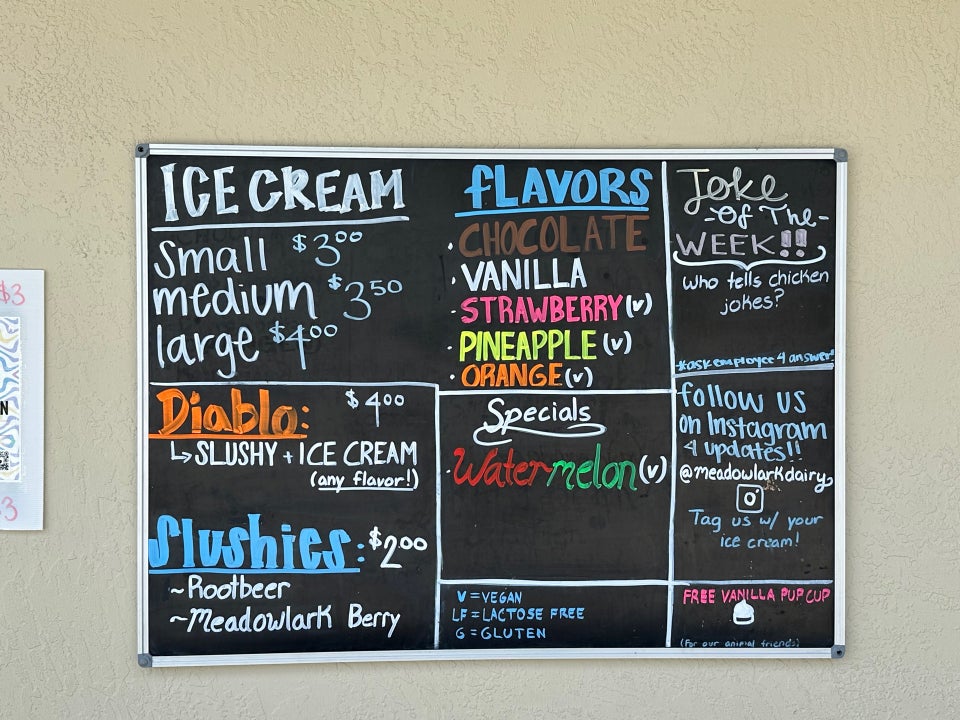 ICE CREAM
Small $3.00
medium $3.50
large $4.00
Diablo: $4.00
↳ SLUSHY + ICE CREAM
(any flavor!)
Slushies: $2.00
~Rootbeer
~Meadowlark Berry
FLAVORS
· CHOCOLATE
· VANILLA
· STRAWBERRY (v)
· PINEAPPLE (v)
· ORANGE (v)
Specials
· Watermelon (v)
V = VEGAN
LF = LACTOSE FREE
G = GLUTEN
Joke
-Of The-
WEEK!!
Who tells chicken
jokes?
*ask employee 4 answer!
follow us
on Instagram
4 updates!!
@meadowlarkdairy
Tag us w/ your
ice cream!
FREE VANILLA PUP CUP
(For our animal friends)
$3
N
$3